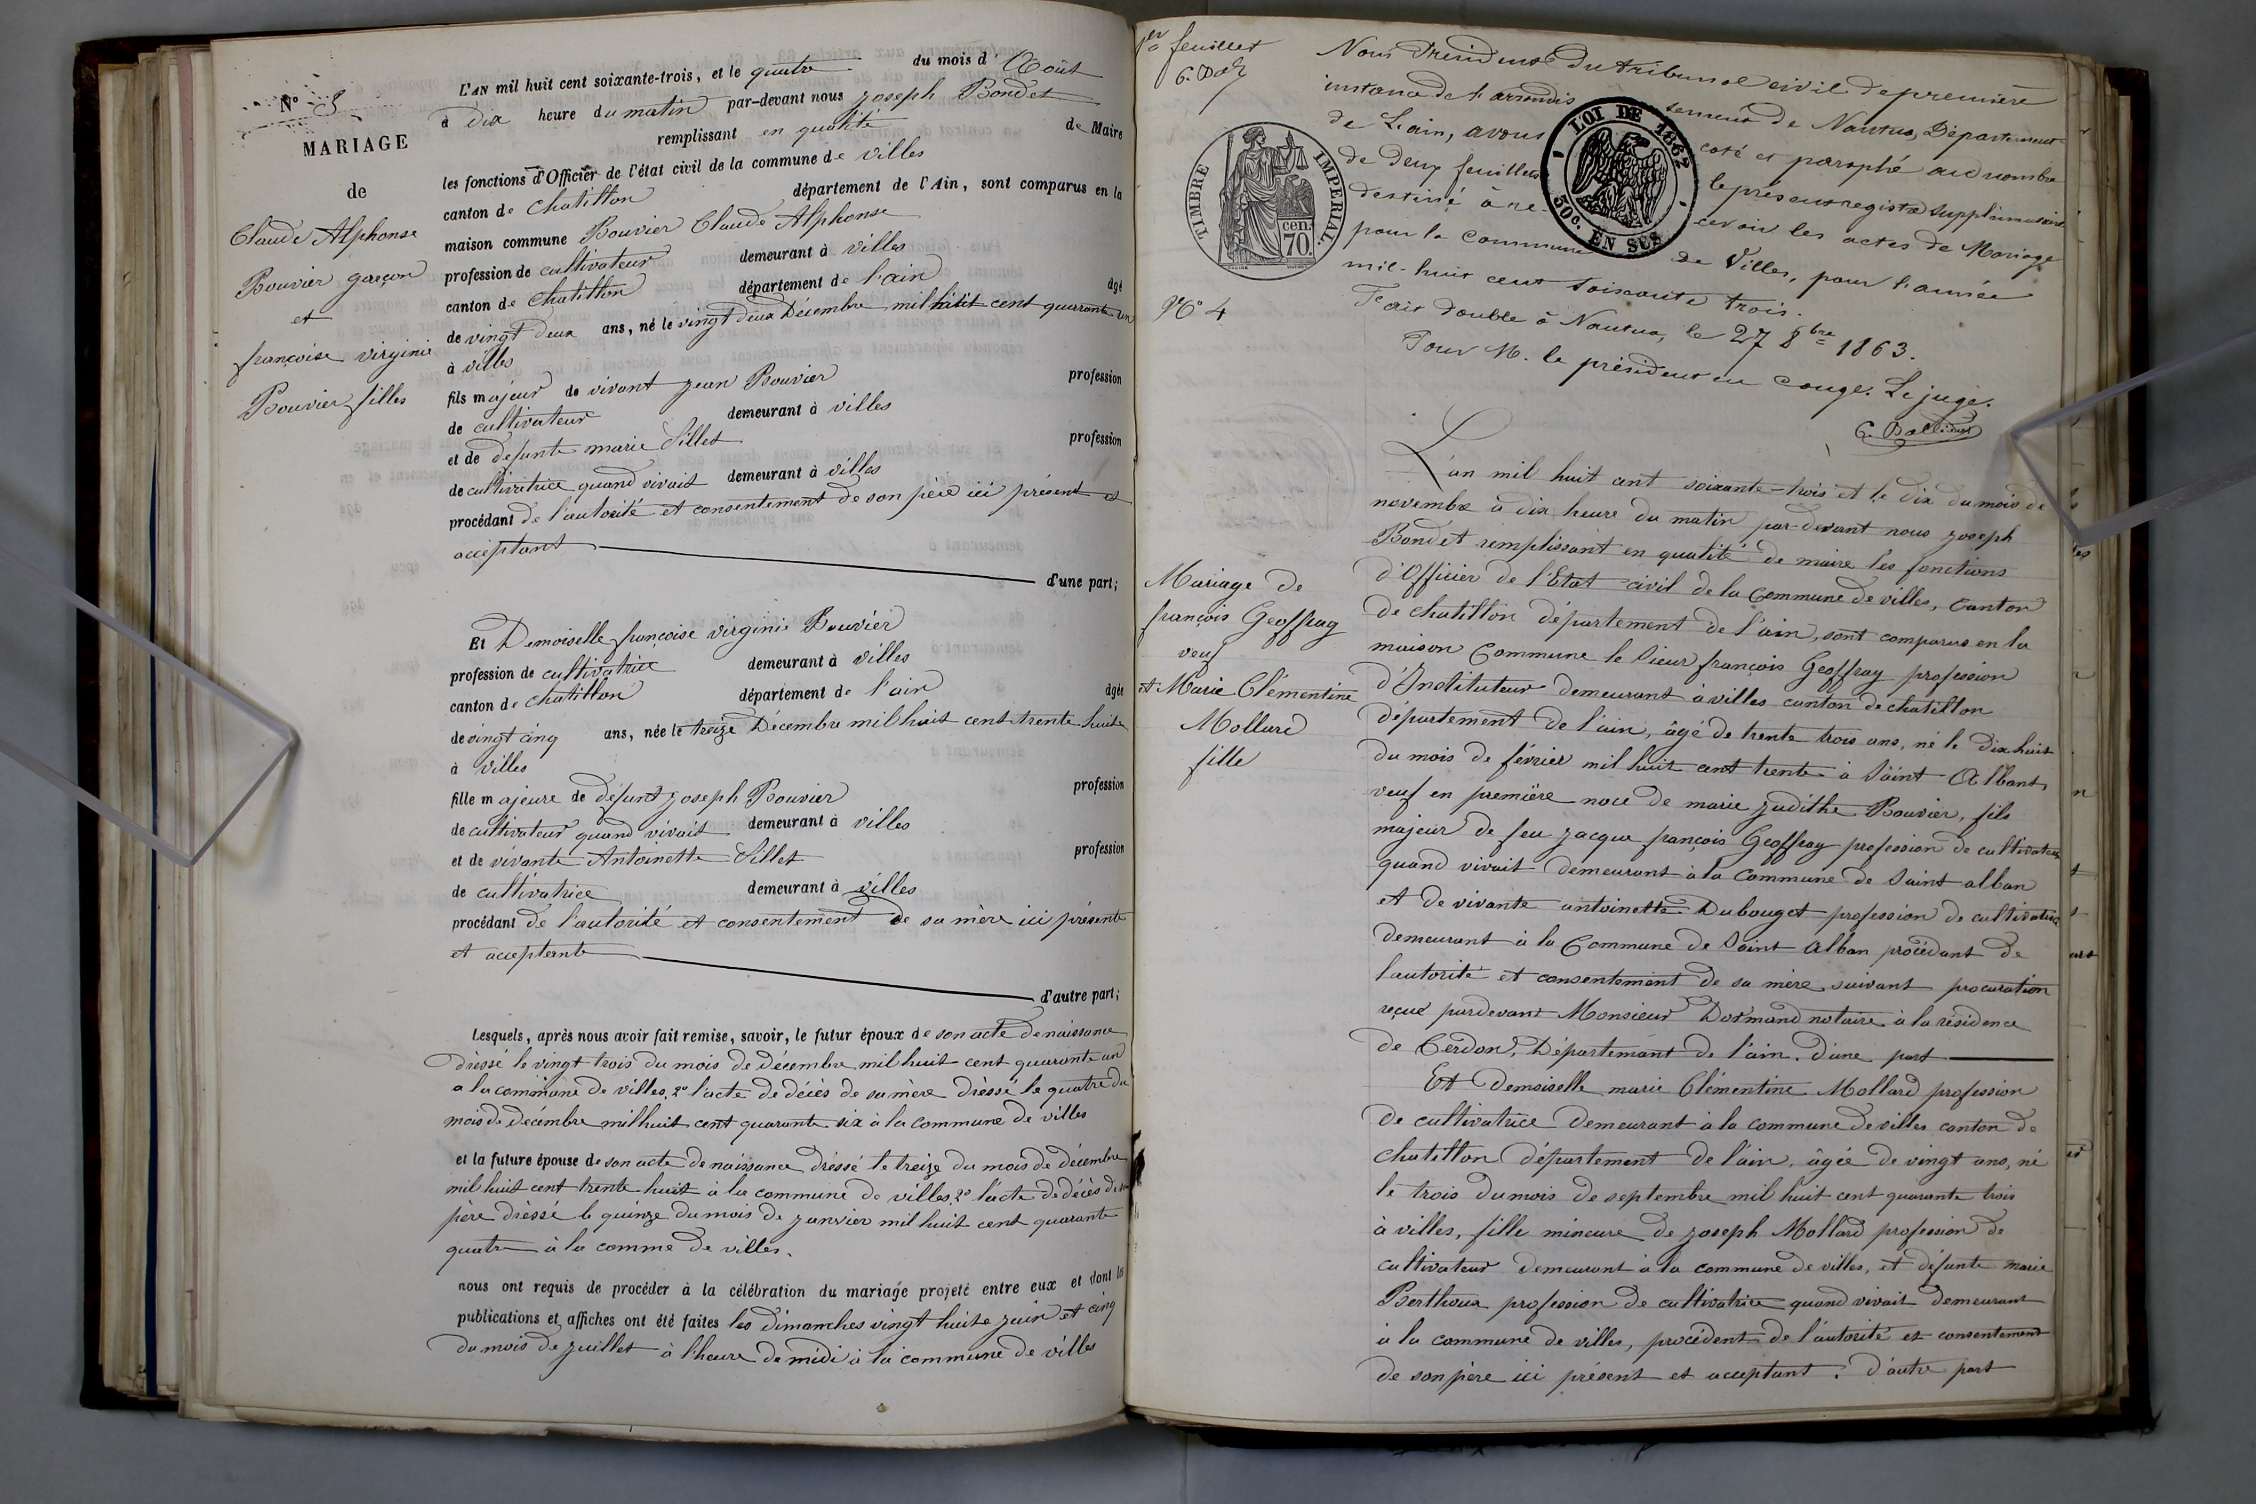 N° 3
MARIAGE
de
Claude Alphonse
Bouvier garçon
et
françoise virginie
Bouvier filles
L'AN mil huit cent soixante-trois, et le quatre du mois d'Août
à dix heure du matin par-devant nous joseph Bondet
remplissant en qualité de Maire
les fonctions d'Officier de l'état civil de la commune de villes
canton de chatillon département de l'Ain, sont comparus en la
maison commune Bouvier Claude Alphonse
profession de cultivateur demeurant à villes
canton de chatillon département de l'ain âgé
de vingt deux ans, né le vingt deux Décembre mil huit cent quarante un
à villes
fils majeur de vivant jean Bouvier profession
de cultivateur demeurant à villes
et de defunte marie Sillet profession
de cultivatrice quand vivait demeurant à villes
procédant de l'autorité et consentement de son père ici présent et
acceptant d'une part;
Et Demoiselle françoise virginie Bouvier
profession de cultivatrice demeurant à villes
canton de chatillon département de l'ain âgée
de vingt cinq ans, née le treize Décembre mil huit cent trente huit
à villes
fille majeure de défunt joseph Bouvier profession
de cultivateur quand vivait demeurant à villes
et de vivante Antoinette Sillet profession
de cultivatrice demeurant à villes
procédant de l'autorité et consentement de sa mère ici présente
et acceptente d'autre part;
Lesquels, après nous avoir fait remise, savoir, le futur époux de son acte de naissance
dréssé le vingt trois du mois de décembre mil huit cent quarante un
a la commune de villes, 2° l'acte de décès de sa mère dréssé le quatre du
mois de décembre mil huit cent quarante six à la commune de villes
et la future épouse de son acte de naissance dréssé le treize du mois de décembre
mil huit cent trente huit à la commune de villes, 2° l'acte de décès de son
père dréssé le quinze du mois de janvier mil huit cent quarante
quatre à la comme de villes.
nous ont requis de procéder à la célébration du mariage projeté entre eux et dont les
publications et affiches ont été faites les dimanches vingt huite juin et cinq
du mois de juillet à l'heure de midi à la commune de villes
1er feuillet
Nous Président du tribunal civil de première
instance de l'arrondissement de Nantua, Département
de L'ain, avons coté et paraphé au nombre
de deux feuillets le présent registre supplémentaire
destiné à recevoir les actes de Mariage
pour la commune de Villes, pour l'année
mil-huit cent soixante trois.
Fait double à Nantua, le 27 8bre 1863.
Pour M. le président en congé. Le juge.
TIMBRE IMPERIAL
70 cen.
LOI DE 1862
50c. EN SUS
N° 4
Mariage de
françois Geoffray
veuf
et Marie Clémentine
Mollard
fille
L'an mil huit cent soixante-trois et le dix du mois de
novembre à dix heure du matin par-devant nous joseph
Bondet remplissant en qualité de maire les fonctions
d'Officier de l'Etat civil de la Commune de villes, canton
de chatillon département de l'ain, sont comparus en la
maison Commune le Sieur françois Geoffray profession
d'Instituteur demeurant à villes canton de chatillon
département de l'ain, âgé de trente trois ans, né le dix huit
du mois de février mil huit cent trente à Saint Albans
veuf en première noce de marie judithe Bouvier, fils
majeur de feu jacque françois Geoffray profession de cultivateur
quand vivait demeurant à la commune de Saint alban
et de vivante antoinette Dubouget profession de cultivatrice
demeurant à la Commune de Saint Alban procédant de
lautorité et consentement de sa mère suivant procuration
reçue pardevant Monsieur Dormand notaire à la résidence
de Cerdon, Département de l'ain. d'une part
Et Demoiselle marie Clémentine Mollard profession
de cultivatrice demeurant à la commune de villes canton de
chatillon département de l'ain, âgée de vingt ans, né
le trois du mois de septembre mil huit cent quarante trois
à villes, fille mineure de joseph Mollard profession de
cultivateur demeurant à la commune de villes, et défunte marie
Berthoux profession de cultivatrice quand vivait demeurant
à la commune de villes, procédent de l'autorité et consentement
de son père ici présent et acceptant. d'autre part